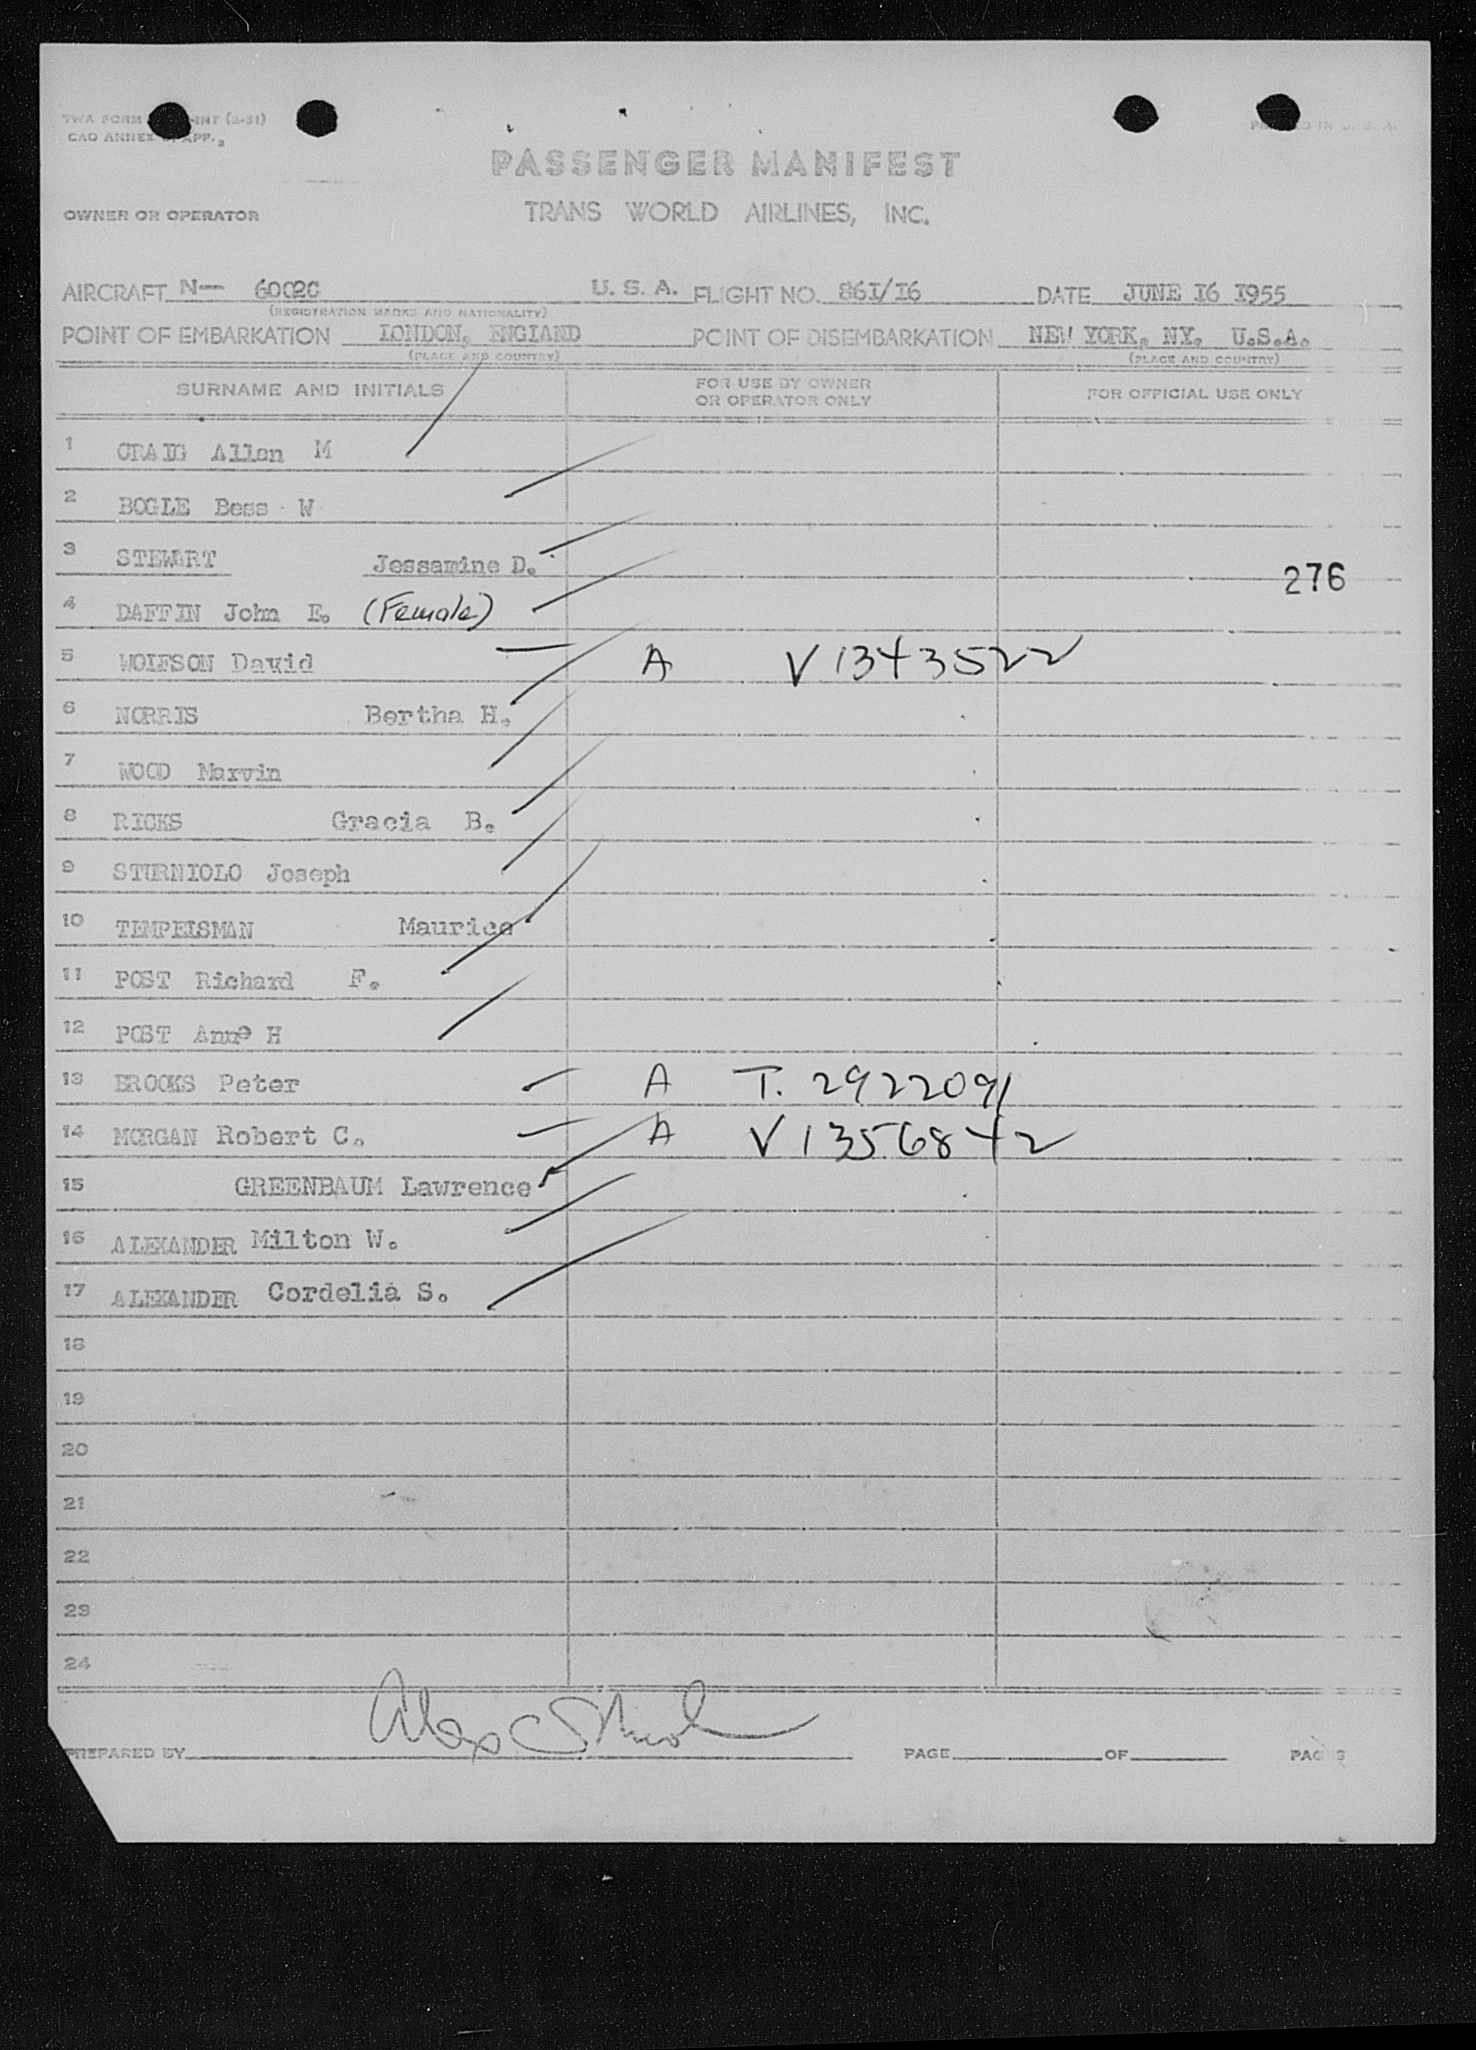 TWA FORM -INT (2-51)
CAO ANNEX APP. 2
PRINTED IN U. S. A.
PASSENGER MANIFEST
OWNER OR OPERATOR TRANS WORLD AIRLINES, INC.
AIRCRAFT N— 6002C U. S. A. FLIGHT NO. 861/16 DATE JUNE 16 1955
(REGISTRATION MARKS AND NATIONALITY)
POINT OF EMBARKATION LONDON, ENGLAND POINT OF DISEMBARKATION NEW YORK, NY. U.S.A.
(PLACE AND COUNTRY) (PLACE AND COUNTRY)
SURNAME AND INITIALS FOR USE BY OWNER OR OPERATOR ONLY FOR OFFICIAL USE ONLY
1 CRAIG Allen M
2 BOGLE Bess W
3 STEWART Jessamine D.
276
4 DAFFIN John E. (Female)
5 WOLFSON David A V1343522
6 NORRIS Bertha H.
7 WOOD Marvin
8 RICKS Gracia B.
9 STURNIOLO Joseph
10 TEMPELSMAN Maurice
11 POST Richard F.
12 POST Anne H
13 BROOKS Peter A T. 2922091
14 MORGAN Robert C. A V1356842
15 GREENBAUM Lawrence
16 ALEXANDER Milton W.
17 ALEXANDER Cordelia S.
18
19
20
21
22
23
24
PREPARED BY Alex PAGE OF PAGES